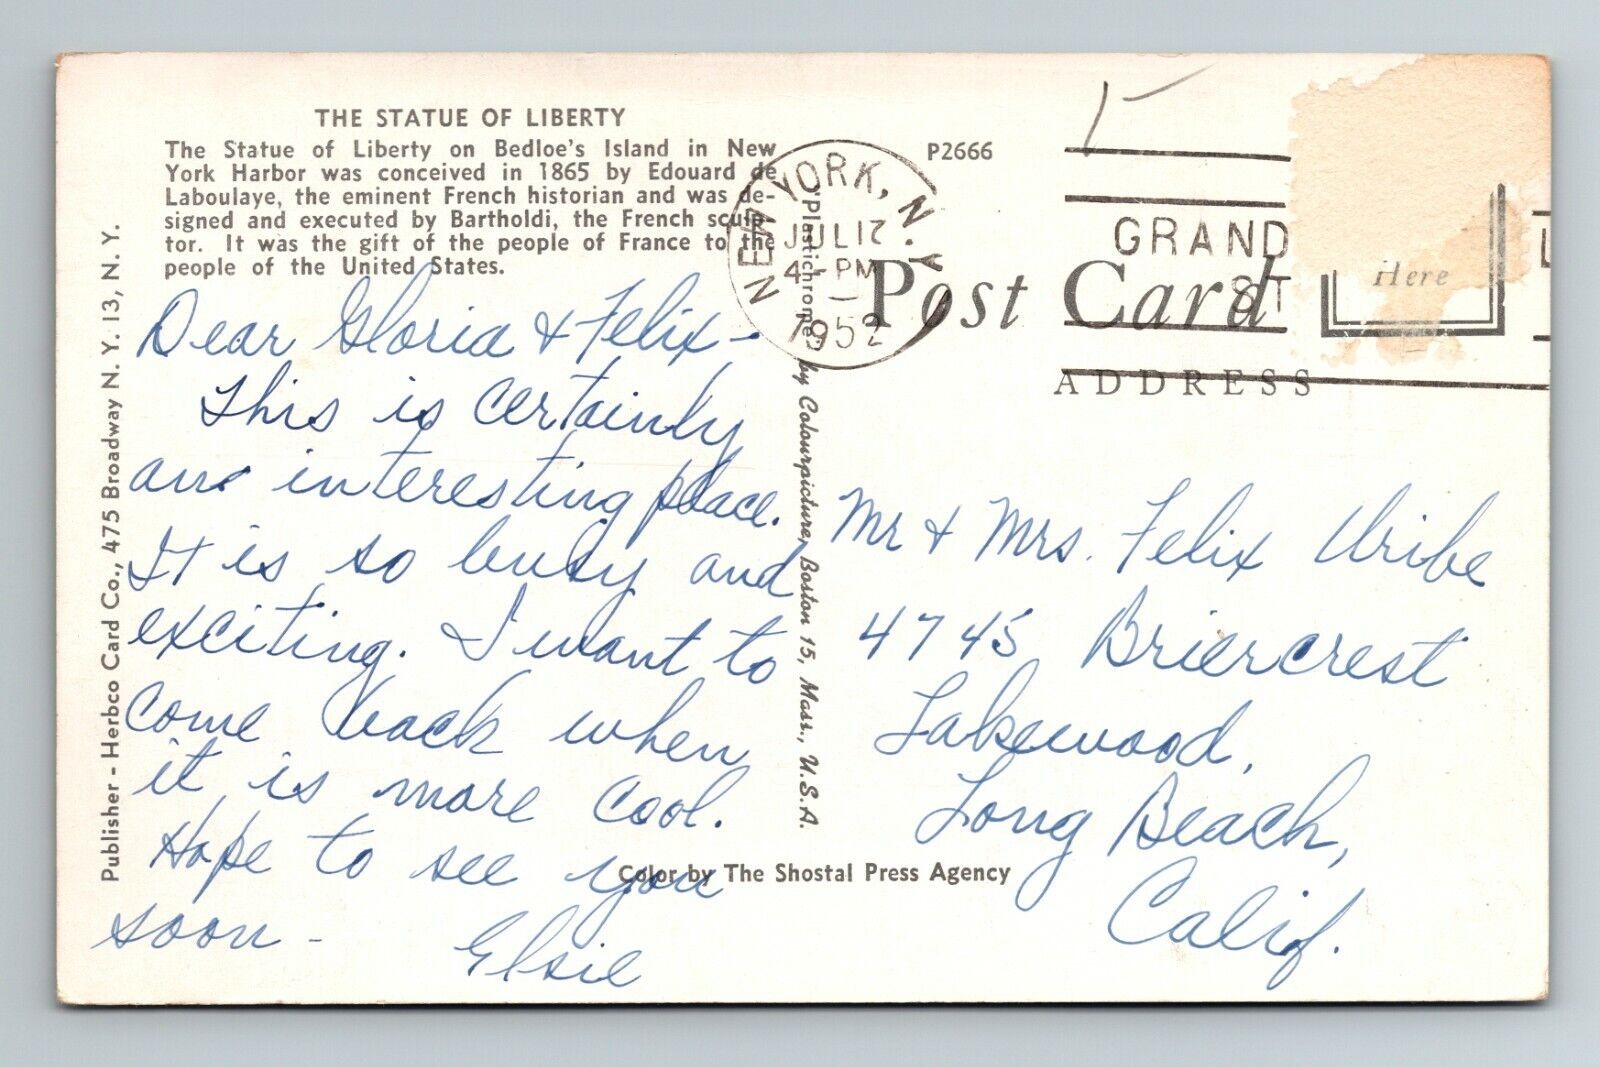 THE STATUE OF LIBERTY
The Statue of Liberty on Bedloe's Island in New
York Harbor was conceived in 1865 by Edouard de
Laboulaye, the eminent French historian and was de-
signed and executed by Bartholdi, the French sculp-
tor. It was the gift of the people of France to the
people of the United States.
Dear Gloria & Felix -
This is certainly
an interesting place.
It is so busy and
exciting. I want to
come back when
it is more cool.
Hope to see you
soon -
Elsie
Publisher - Herbco Card Co., 475 Broadway N. Y. 13, N. Y.
"Plastichrome" by Colourpicture, Boston 15, Mass., U.S.A.
Color by The Shostal Press Agency
P2666
NEW YORK, N.Y.
JUL 17
4 - PM
1952
GRAND
ST
Post Card
Here
ADDRESS
Mr & Mrs. Felix Uribe
4745 Briercrest
Lakewood,
Long Beach,
Calif.